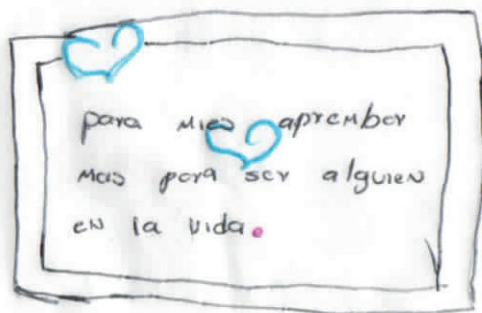 para mies aprember
mas para ser alguien
en la vida.